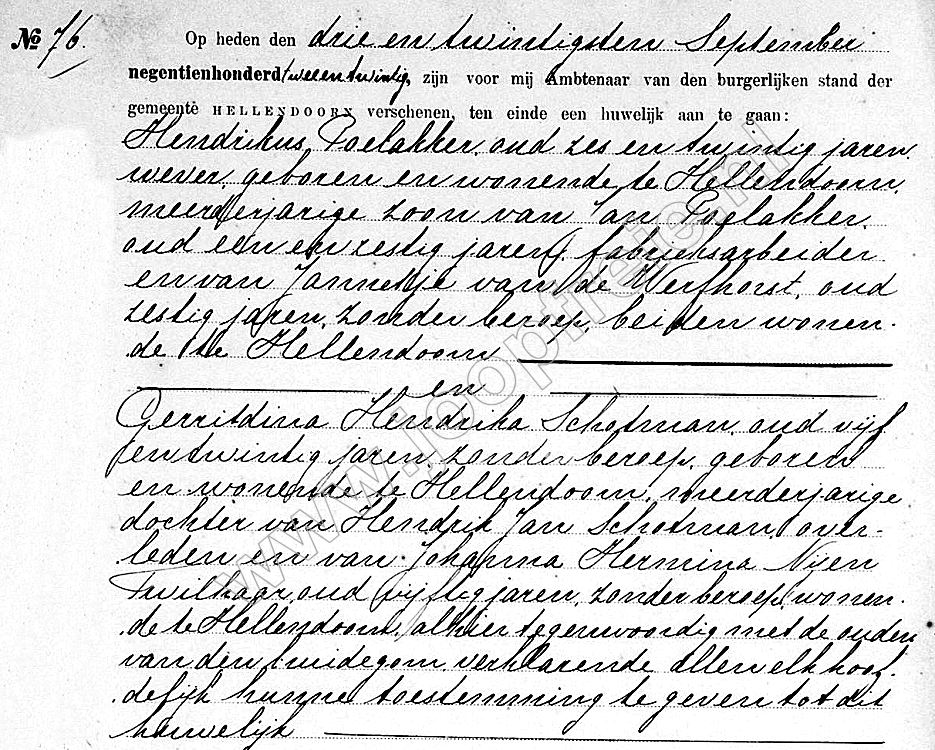 № 76.
Op heden den drie en twintigsten September
negentienhonderd tweeentwintig, zijn voor mij Ambtenaar van den burgerlijken stand der
gemeente HELLENDOORN verschenen, ten einde een huwelijk aan te gaan:
Hendrikus Poelakker, oud zes en twintig jaren,
wever, geboren en wonende te Hellendoorn,
meerderjarige zoon van Jan Poelakker,
oud een en zestig jaren, fabrieksarbeider
en van Jannetje van de Werfhorst, oud
zestig jaren, zonder beroep, beiden wonen-
de te Hellendoorn
en
Gerritdina Hendrika Schotman, oud vijf
en twintig jaren, zonder beroep, geboren
en wonende te Hellendoorn, meerderjarige
dochter van Hendrik Jan Schotman, over-
leden en van Johanna Hermina Nijen
Twilhaar, oud vijftig jaren, zonder beroep, wonen-
de te Hellendoorn, alhier tegenwoordig met de ouders
van den bruidegom, verklarende allen elk hoof-
delijk hunne toestemming te geven tot dit
huwelijk
www.loopfreie.nl